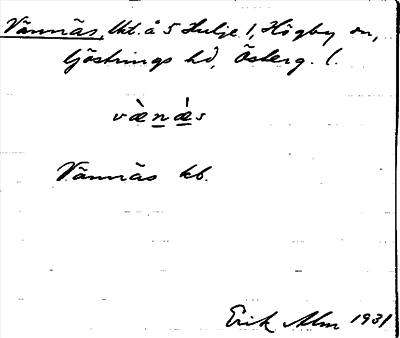 Vännäs, lht. å 5 Hulje 1, Högby sn,
Göstrings hd, Österg. l.
vænæs
Vännäs kb.
Erik Alm 1931